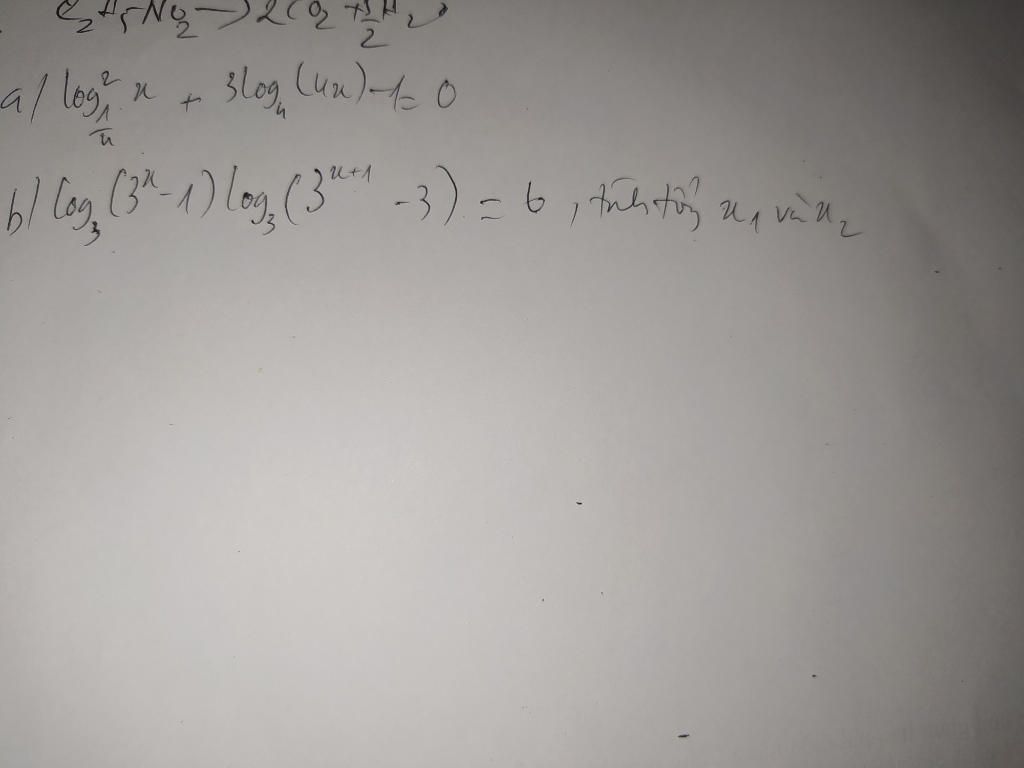 C₂H₅NO₂ → 2CO₂ + 5/2 H₂
a/ log²_{1/4} x + 3log₄(4x) - 1 = 0
b) log₃(3ˣ - 1) log₃(3ˣ⁺¹ - 3) = 6, tính tổng x₁ và x₂